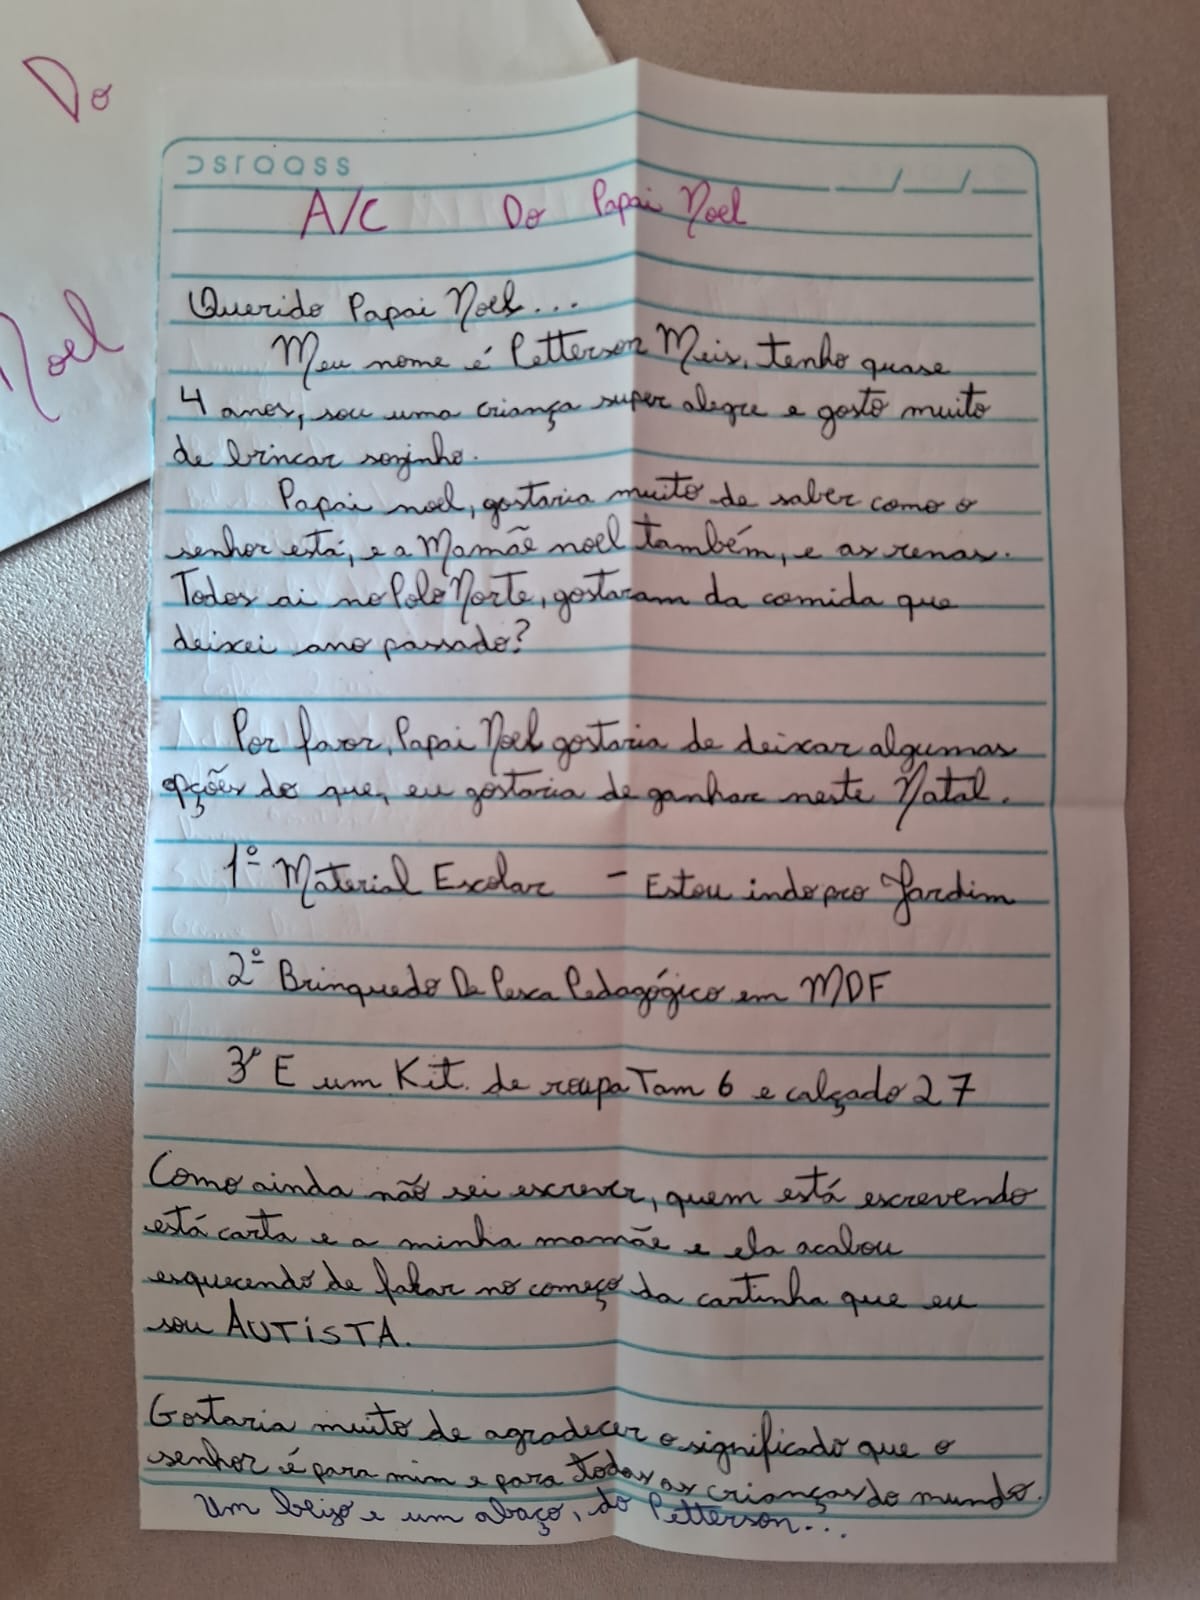 Do
Noel
A/C Do Papai Noel
Querido Papai Noel...
Meu nome é Petterson Meis, tenho quase
4 anos, sou uma criança super alegre e gosto muito
de brincar sozinho.
Papai noel, gostaria muito de saber como o
senhor está, e a Mamãe noel também, e as renas.
Todos ai no Polo Norte, gostaram da comida que
deixei ano passado?
Por favor, Papai Noel gostaria de deixar algumas
opções do que, eu gostaria de ganhar neste Natal.
1º Material Escolar - Estou indo pro Jardim
2º Brinquedo De Pesca Pedagógico em MDF
3º E um Kit. de roupa Tam 6 e calçado 27
Como ainda não sei escrever, quem está escrevendo
está carta e a minha mamãe e ela acabou
esquecendo de falar no começo da cartinha que eu
sou AUTISTA.
Gostaria muito de agradecer o significado que o
senhor é para mim e para todas as crianças do mundo.
Um beijo e um abaço, do Petterson...